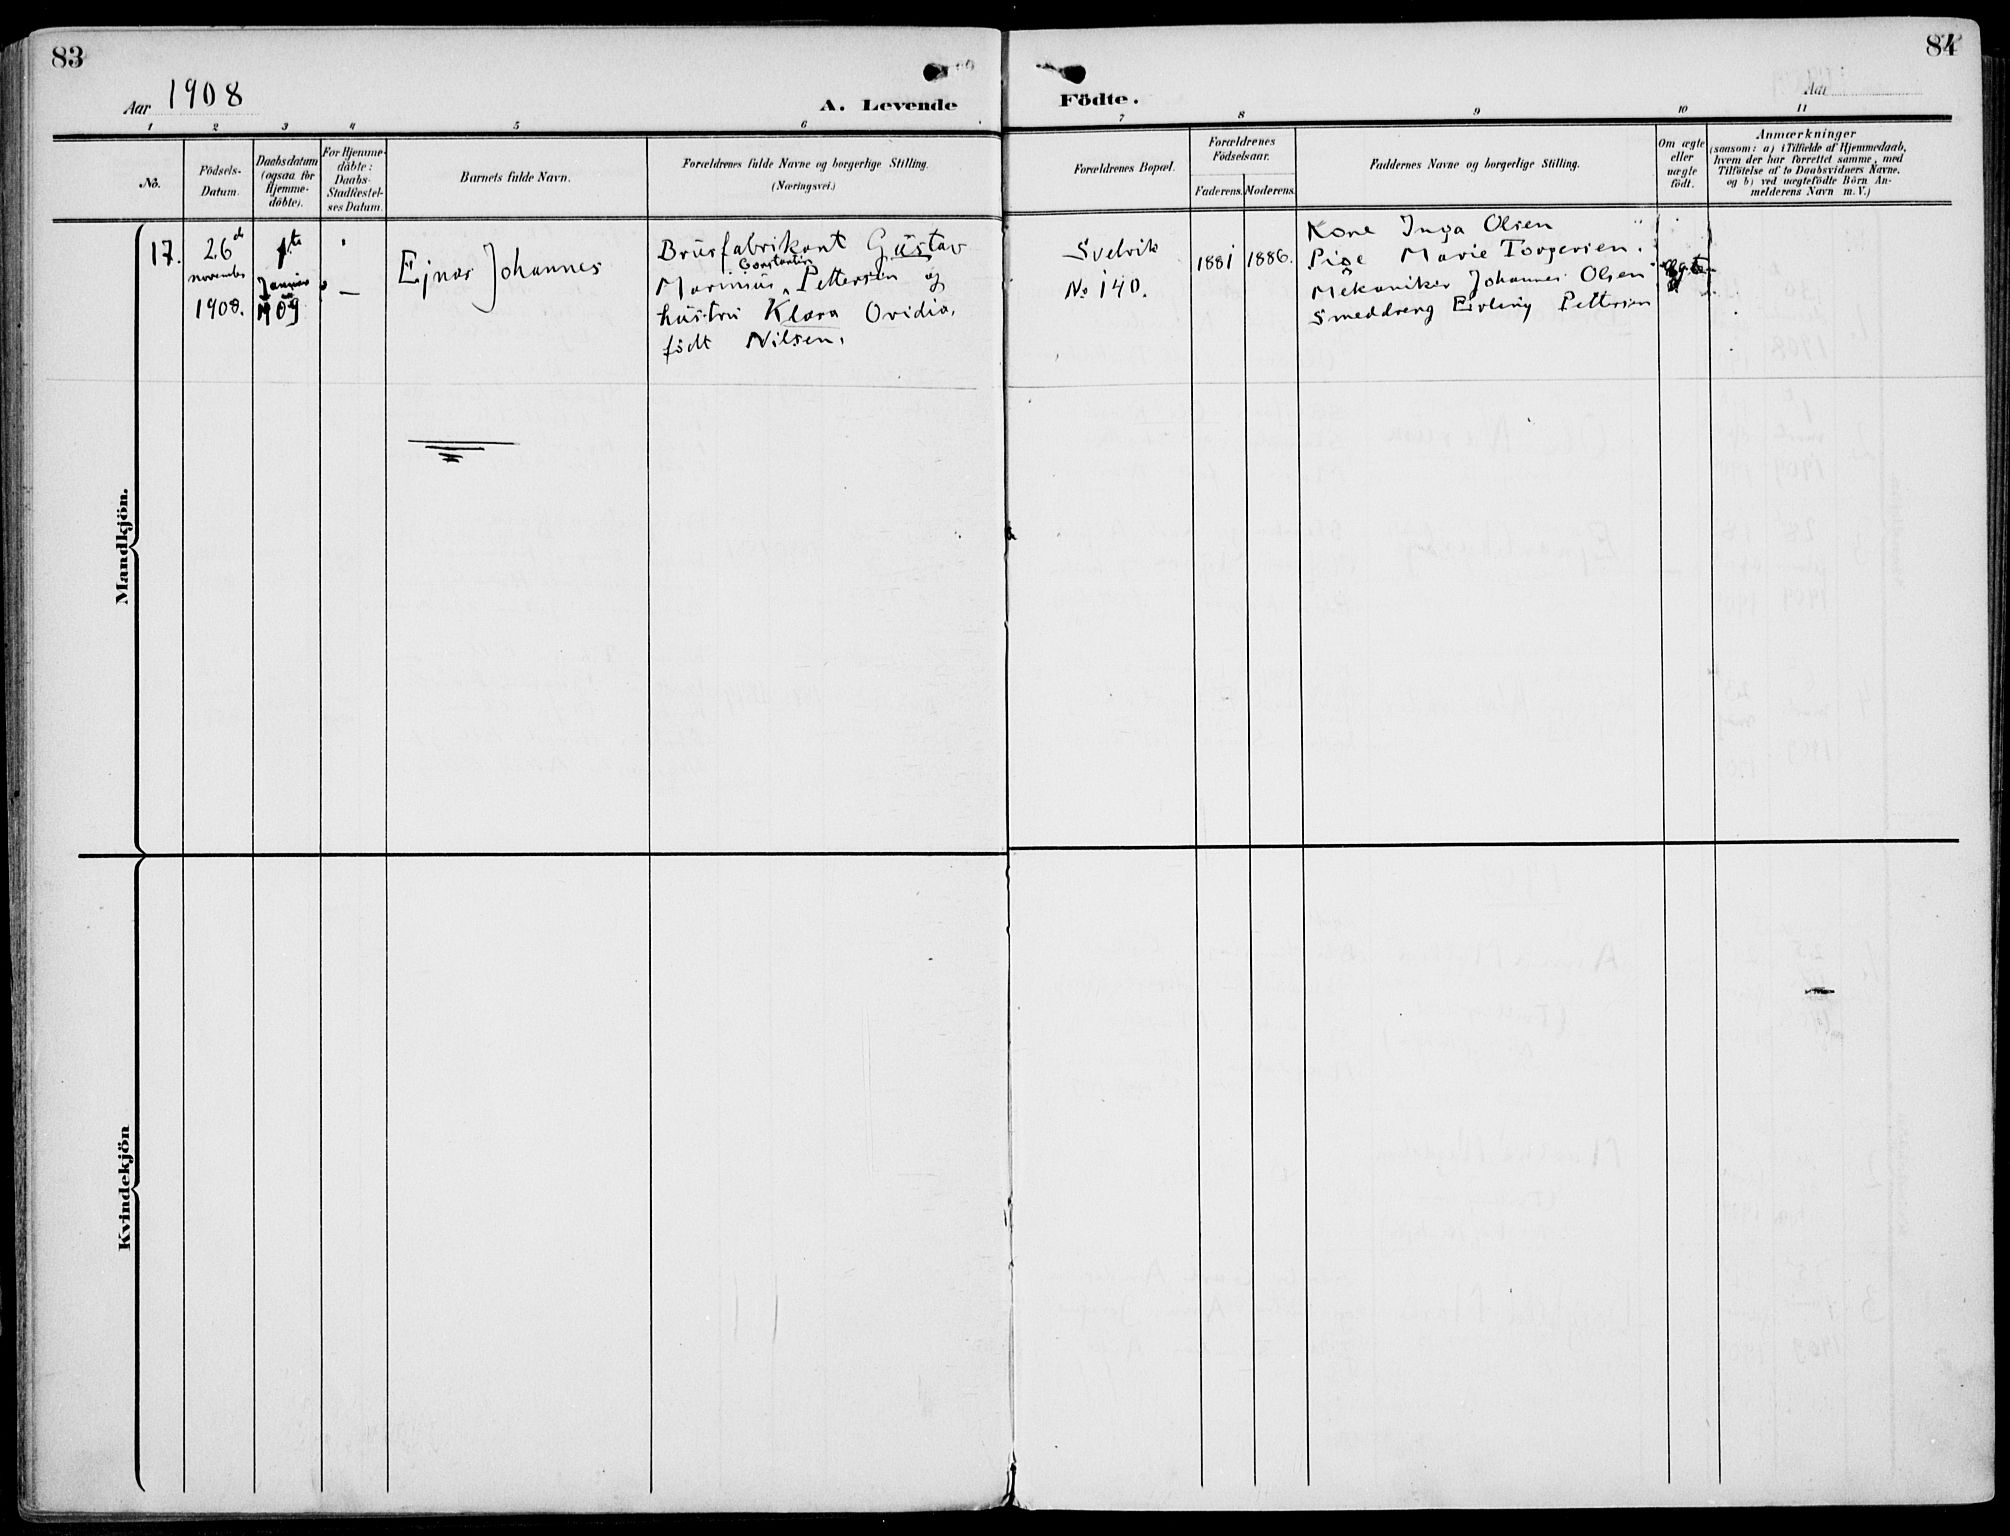 83
Aar 1908
A. Levende
1 2 3 4 5 6
No.
Födsels-
Datum.
Daabsdatum
(ogsaa for
Hjemme-
döbte).
For Hjemme-
döbte:
Daabs-
Stadfæstel-
ses Datum.
Barnets fulde Navn.
Forældrenes fulde Navne og borgerlige Stilling.
(Næringsvei.)
17.
26d
november
1908.
1te
Januar
1909
—
Ejnar Johannes
Brusfabrikant Gustav
Constantin
Marinius Pettersen og
hustru Klara Ovidia,
födt Nilsen.
Mandkjön.
Kvindekjön
84
Aar
Födte.
7 8 9 10 11
Forældrenes Bopæl.
Forældrenes
Födselsaar.
Faderens. Moderens.
Faddernes Navne og borgerlige Stilling.
Om ægte
eller
uægte
födt.
Anmærkninger
(saasom: a) i Tilfælde af Hjemmedaab,
hvem der har forrettet samme, med
Tilföielse af to Daabsvidners Navne.
og b) ved uægtefödte Börn An-
melderens Navn m. V.)
Svelvik
No 140.
1881
1886.
Kone Inga Olsen
Pige Marie Torgersen.
Mekaniker Johannes Olsen
Smeddreng Erling Pettersen
ægte